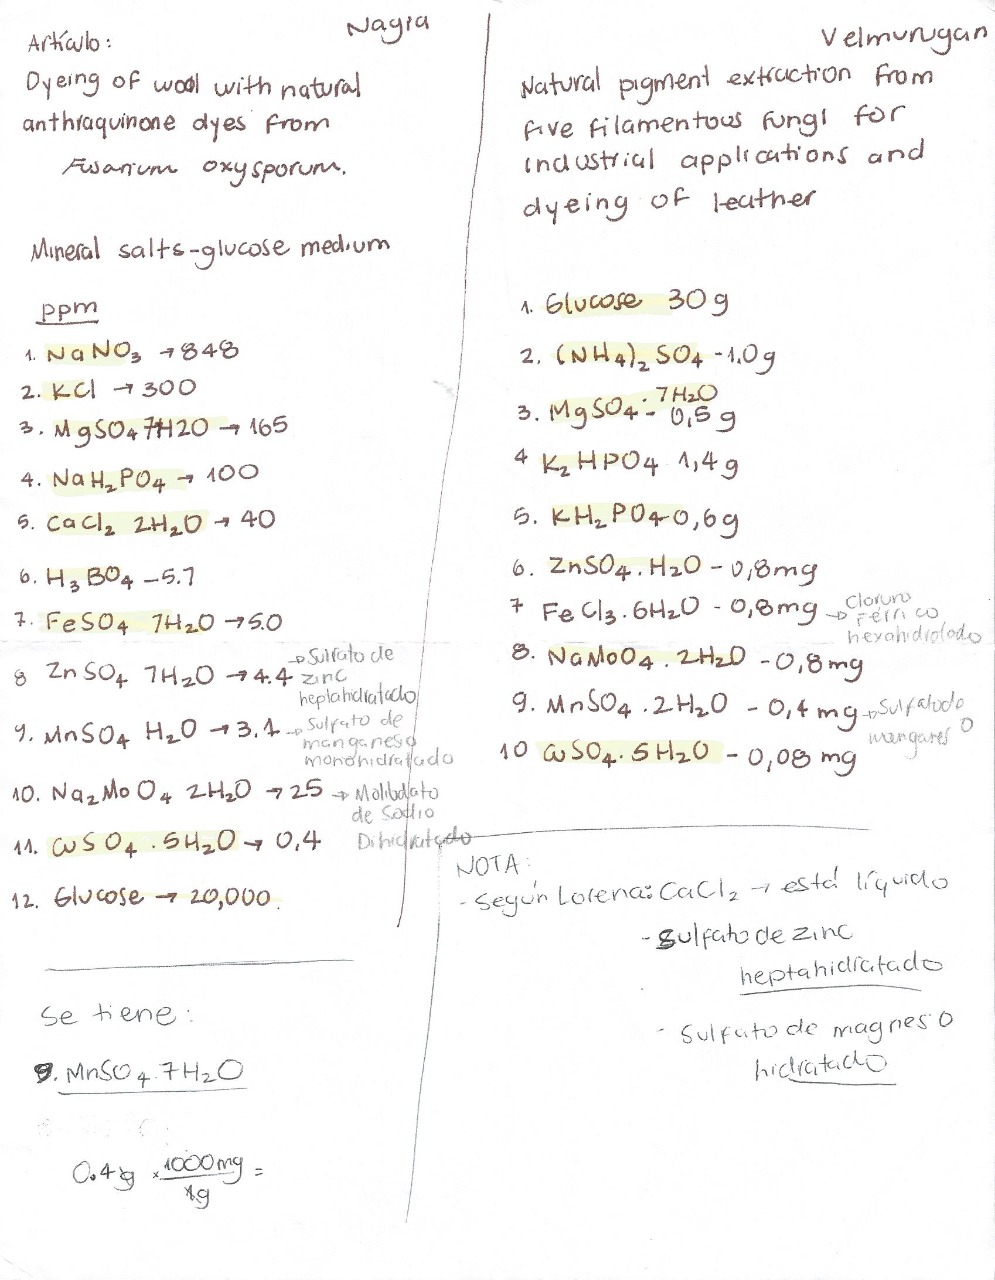 Nagia
Artículo:
Dyeing of wool with natural
anthraquinone dyes from
Fusarium oxysporum.
Mineral salts-glucose medium
ppm
1. NaNO3 → 848
2. KCl → 300
3. MgSO4 7H2O → 165
4. NaH2PO4 → 100
5. CaCl2 2H2O → 40
6. H3BO4 – 5.7
7. FeSO4 7H2O → 5.0
8 ZnSO4 7H2O → 4.4 → Sulfato de
zinc
heptahidratado
9. MnSO4 H2O → 3.1 → Sulfato de
manganeso
monohidratado
10. Na2MoO4 2H2O → 25 → Molibdato
de Sodio
Dihidratado
11. CuSO4 . 5H2O → 0,4
12. Glucose → 20,000.
Se tiene:
9. MnSO4.7H2O
0.4g × 1000mg =
1g
Velmurugan
Natural pigment extraction from
five filamentous fungi for
industrial applications and
dyeing of leather
1. Glucose 30g
2. (NH4)2 SO4 - 1.0g
3. MgSO4 · 7H2O - 0,5g
4 K2HPO4 1,4g
5. KH2PO4 0,6g
6. ZnSO4.H2O - 0,8mg
7 FeCl3.6H2O - 0,8mg → Cloruro
Férrico
hexahidratado
8. NaMoO4.2H2O - 0,8mg
9. MnSO4.2H2O - 0,4mg →
10 CuSO4.5H2O - 0,08 mg
NOTA:
- Según Lorena: CaCl2 → está líquido
- Sulfato de zinc
heptahidratado
- Sulfato de magneso
hidratado